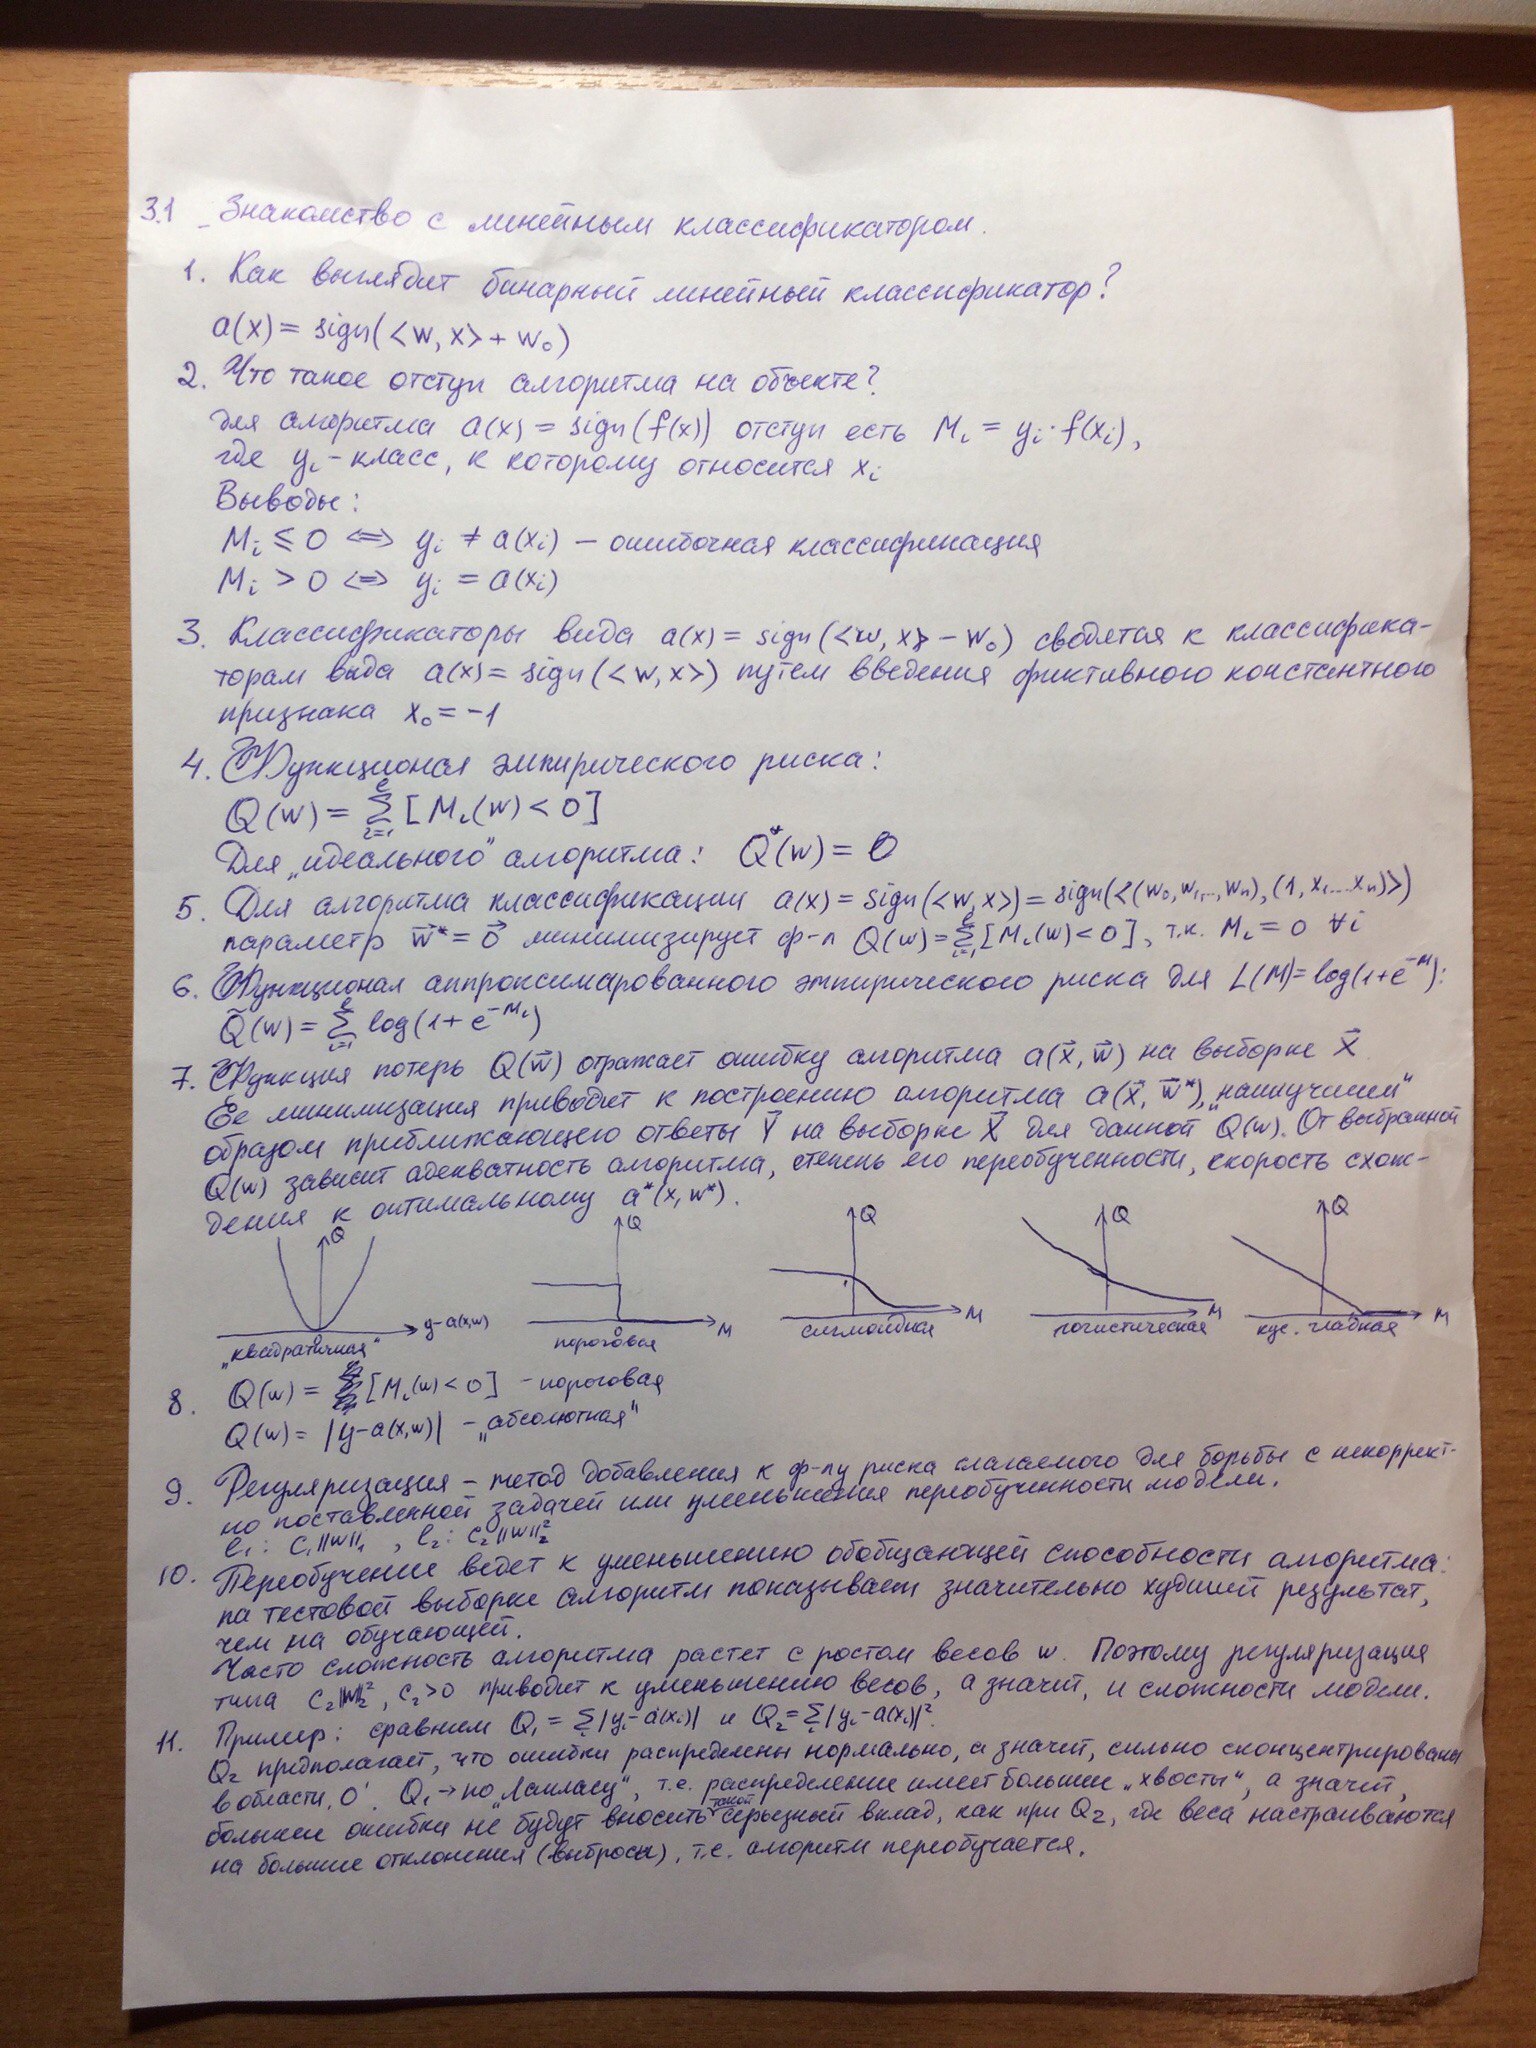 3.1 Знакомство с линейным классификатором.
1. Как выглядит бинарный линейный классификатор?
a(x) = sign(<w, x> + w₀)
2. Что такое отступ алгоритма на объекте?
Для алгоритма a(x) = sign(f(x)) отступ есть Mᵢ = yᵢ·f(xᵢ),
где yᵢ - класс, к которому относится xᵢ
Выводы:
Mᵢ ≤ 0 <=> yᵢ ≠ a(xᵢ) – ошибочная классификация
Mᵢ > 0 <=> yᵢ = a(xᵢ)
3. Классификаторы вида a(x) = sign(<w, x> - w₀) сводятся к классифика-
торам вида a(x) = sign(<w, x>) путем введения фиктивного константного
признака x₀ = -1
4. Функционал эмпирического риска:
Q(w) = Σᵢ₌₁ˡ [Mᵢ(w) < 0]
Для „идеального" алгоритма: Q*(w) = 0
5. Для алгоритма классификации a(x) = sign(<w, x>) = sign(<(w₀, w₁,.., wₙ), (1, x₁...xₙ)>)
параметр w⃗* = 0⃗ минимизирует ф-л Q(w) = Σᵢ₌₁ˡ [Mᵢ(w) < 0], т.к. Mᵢ = 0 ∀i
6. Функционал аппроксимированного эмпирического риска для L(M) = log(1+e⁻ᴹ):
Q̃(w) = Σᵢ₌₁ˡ log(1 + e^(-Mᵢ))
7. Функция потерь Q(w⃗) отражает ошибку алгоритма a(x⃗, w⃗) на выборке X⃗
Ее минимизация приводит к построению алгоритма a(x⃗, w⃗*), „наилучшим"
образом приближающего ответы Y⃗ на выборке X⃗ для данной Q(w). От выбранной
Q(w) зависит адекватность алгоритма, степень его переобученности, скорость схож-
дения к оптимальному a*(x, w*).
Q Q Q Q Q
y-a(x,w) 0 M 1 M M M
„квадратичная" пороговая сигмоидная логистическая кус. гладкая
8. Q(w) = [Mᵢ(w) < 0] - пороговая
Q(w) = |y-a(x,w)| - „абсолютная"
9. Регуляризация – метод добавления к ф-лу риска слагаемого для борьбы с некоррект-
но поставленной задачей или уменьшения переобученности модели.
l₁: C₁||w||₁ , l₂: C₂||w||₂²
10. Переобучение ведет к уменьшению обобщающей способности алгоритма:
на тестовой выборке алгоритм показывает значительно худший результат,
чем на обучающей.
Часто сложность алгоритма растет с ростом весов w. Поэтому регуляризация
типа C₂||w||₂², C₂>0 приводит к уменьшению весов, а значит, и сложности модели.
11. Пример: сравним Q₁ = Σᵢ|yᵢ-a(xᵢ)| и Q₂ = Σᵢ|yᵢ-a(xᵢ)|².
Q₂ предполагает, что ошибки распределены нормально, а значит, сильно сконцентрированы
в области „0". Q₁ → по „Лапласу", т.е. распределение имеет большие „хвосты", а значит,
большие ошибки не будут вносить такой серьезный вклад, как при Q₂, где веса настраиваются
на большие отклонения (выбросы), т.е. алгоритм переобучается.